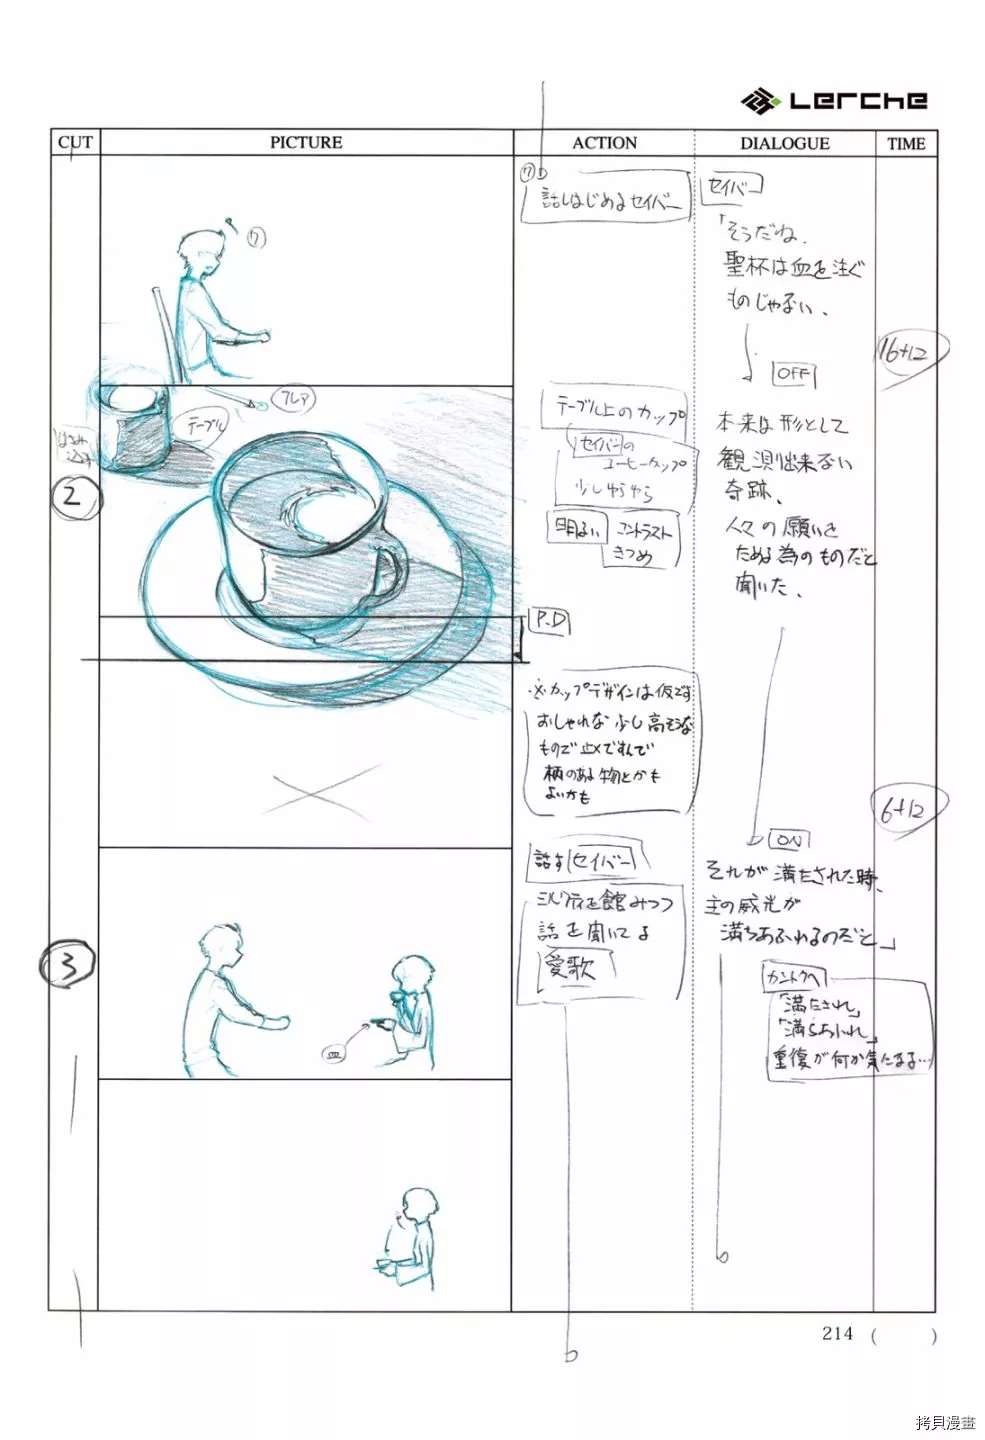 Lerche
CUT
PICTURE
ACTION
DIALOGUE
TIME
ワ
話しはじめるセイバー
セイバー
「そうだね、
聖杯は血を注ぐ
ものじゃない、
16+12
OFF
フレア
テーブル
テーブル上のカップ
セイバーの
コーヒーカップ
少しゆらゆら
明るい
コントラスト
きつめ
本来は形として
観測出来ない
奇跡、
人々の願いを
ためる為のものだと
聞いた、
2
P.D
※カップデザインは仮です
おしゃれな少し高そうな
もので 止メですんで
柄のある物とかも
よいかも
6+12
ON
話すセイバー
ミルクティを
みつつ
話を聞いてる
愛歌
それが満たされた時、
主の威光が
満ちあふれるのだと」
3
皿
カントクへ
「満たされ」
「満ちあふれ」
重複が何か気になる…
214 ( )
拷貝漫畫